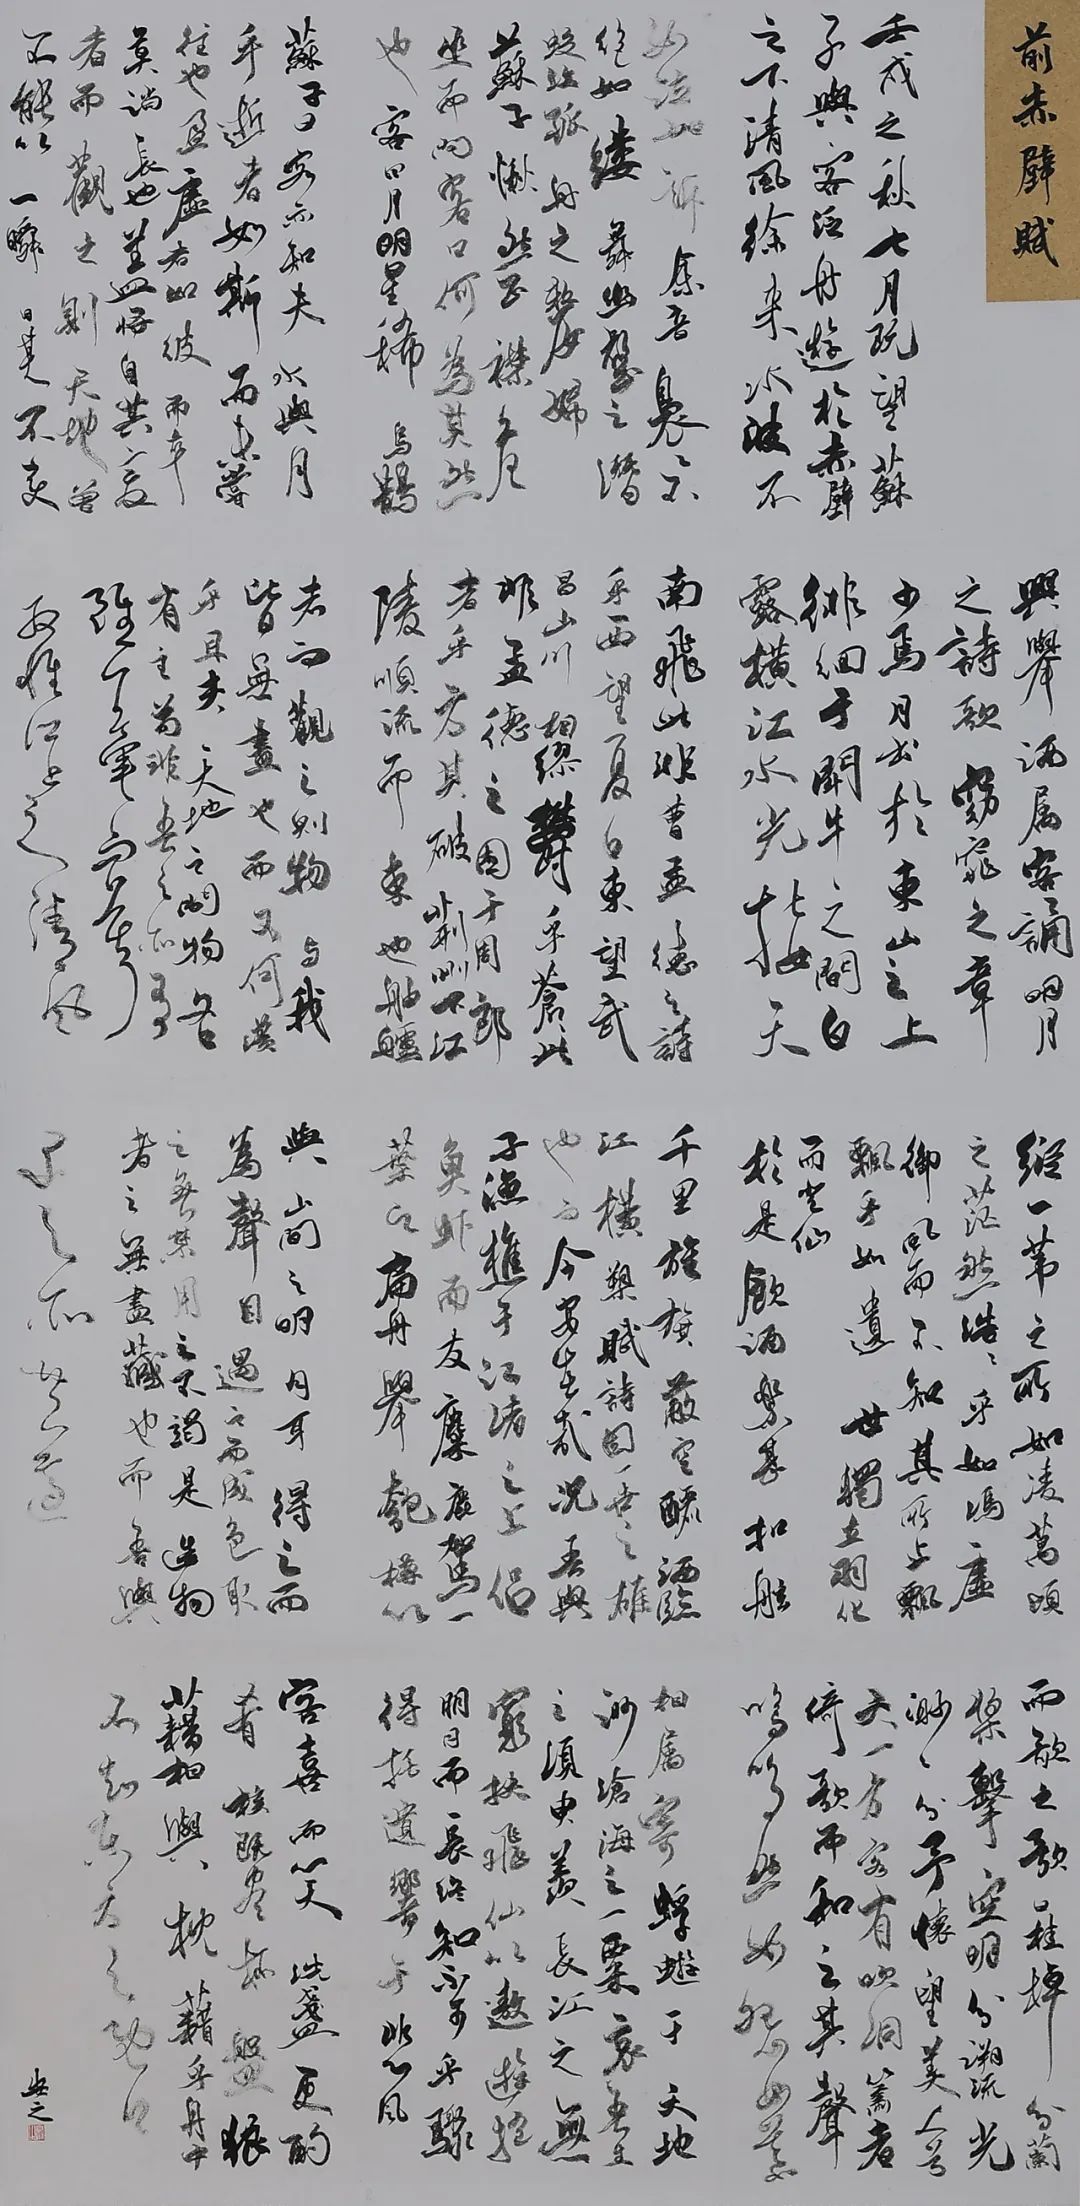 前赤壁賦
壬戌之秋七月既望蘇
子與客泛舟遊於赤壁
之下清風徐來水波不
興舉酒属客誦明月
之詩歌窈窕之章
少焉月出於東山之上
徘徊于鬥牛之間白
露橫江水光接天
縱一葦之所如凌萬頃
之茫然浩浩乎如馮虛
御風而不知其所止飄
飄乎如遺世獨立羽化
而登仙
於是飲酒樂甚扣舷
而歌之歌曰桂棹兮蘭
槳擊空明兮溯流光
渺渺兮予懷望美人兮
天一方客有吹洞簫者
倚歌而和之其聲
嗚嗚然如怨如慕
如泣如訴餘音裊裊不
絕如縷舞幽壑之潛
蛟泣孤舟之嫠婦
蘇子愀然正襟危
坐而問客曰何為其然
也客曰月明星稀烏鵲
南飛此非曹孟德之詩
乎西望夏口東望武
昌山川相繆鬱乎蒼蒼此
非孟德之困于周郎
者乎方其破荊州下江
陵順流而東也舳艫
千里旌旗蔽空釃酒臨
江橫槊賦詩固一世之雄
也而今安在哉況吾與
子漁樵于江渚之上侶
魚蝦而友麋鹿駕一
葉之扁舟舉匏樽以
相属寄蜉蝣于天地
渺滄海之一粟哀吾生
之須臾羨長江之無
窮挾飛仙以遨遊抱
明月而長終知不可乎驟
得托遺響于悲風
蘇子曰客亦知夫水與月
乎逝者如斯而未嘗
往也盈虛者如彼而卒
莫消長也蓋將自其變
者而觀之則天地曾
不能以一瞬自其不變
者而觀之則物與我
皆無盡也而又何羨
乎且夫天地之間物各
有主苟非吾之所有
雖一毫而莫取
惟江上之清風
與山間之明月耳得之而
為聲目遇之而成色取
之無禁用之不竭是造物
者之無盡藏也而吾與
子之所共適
客喜而笑洗盞更酌
肴核既盡杯盤狼
藉相與枕藉乎舟中
不知東方之既白